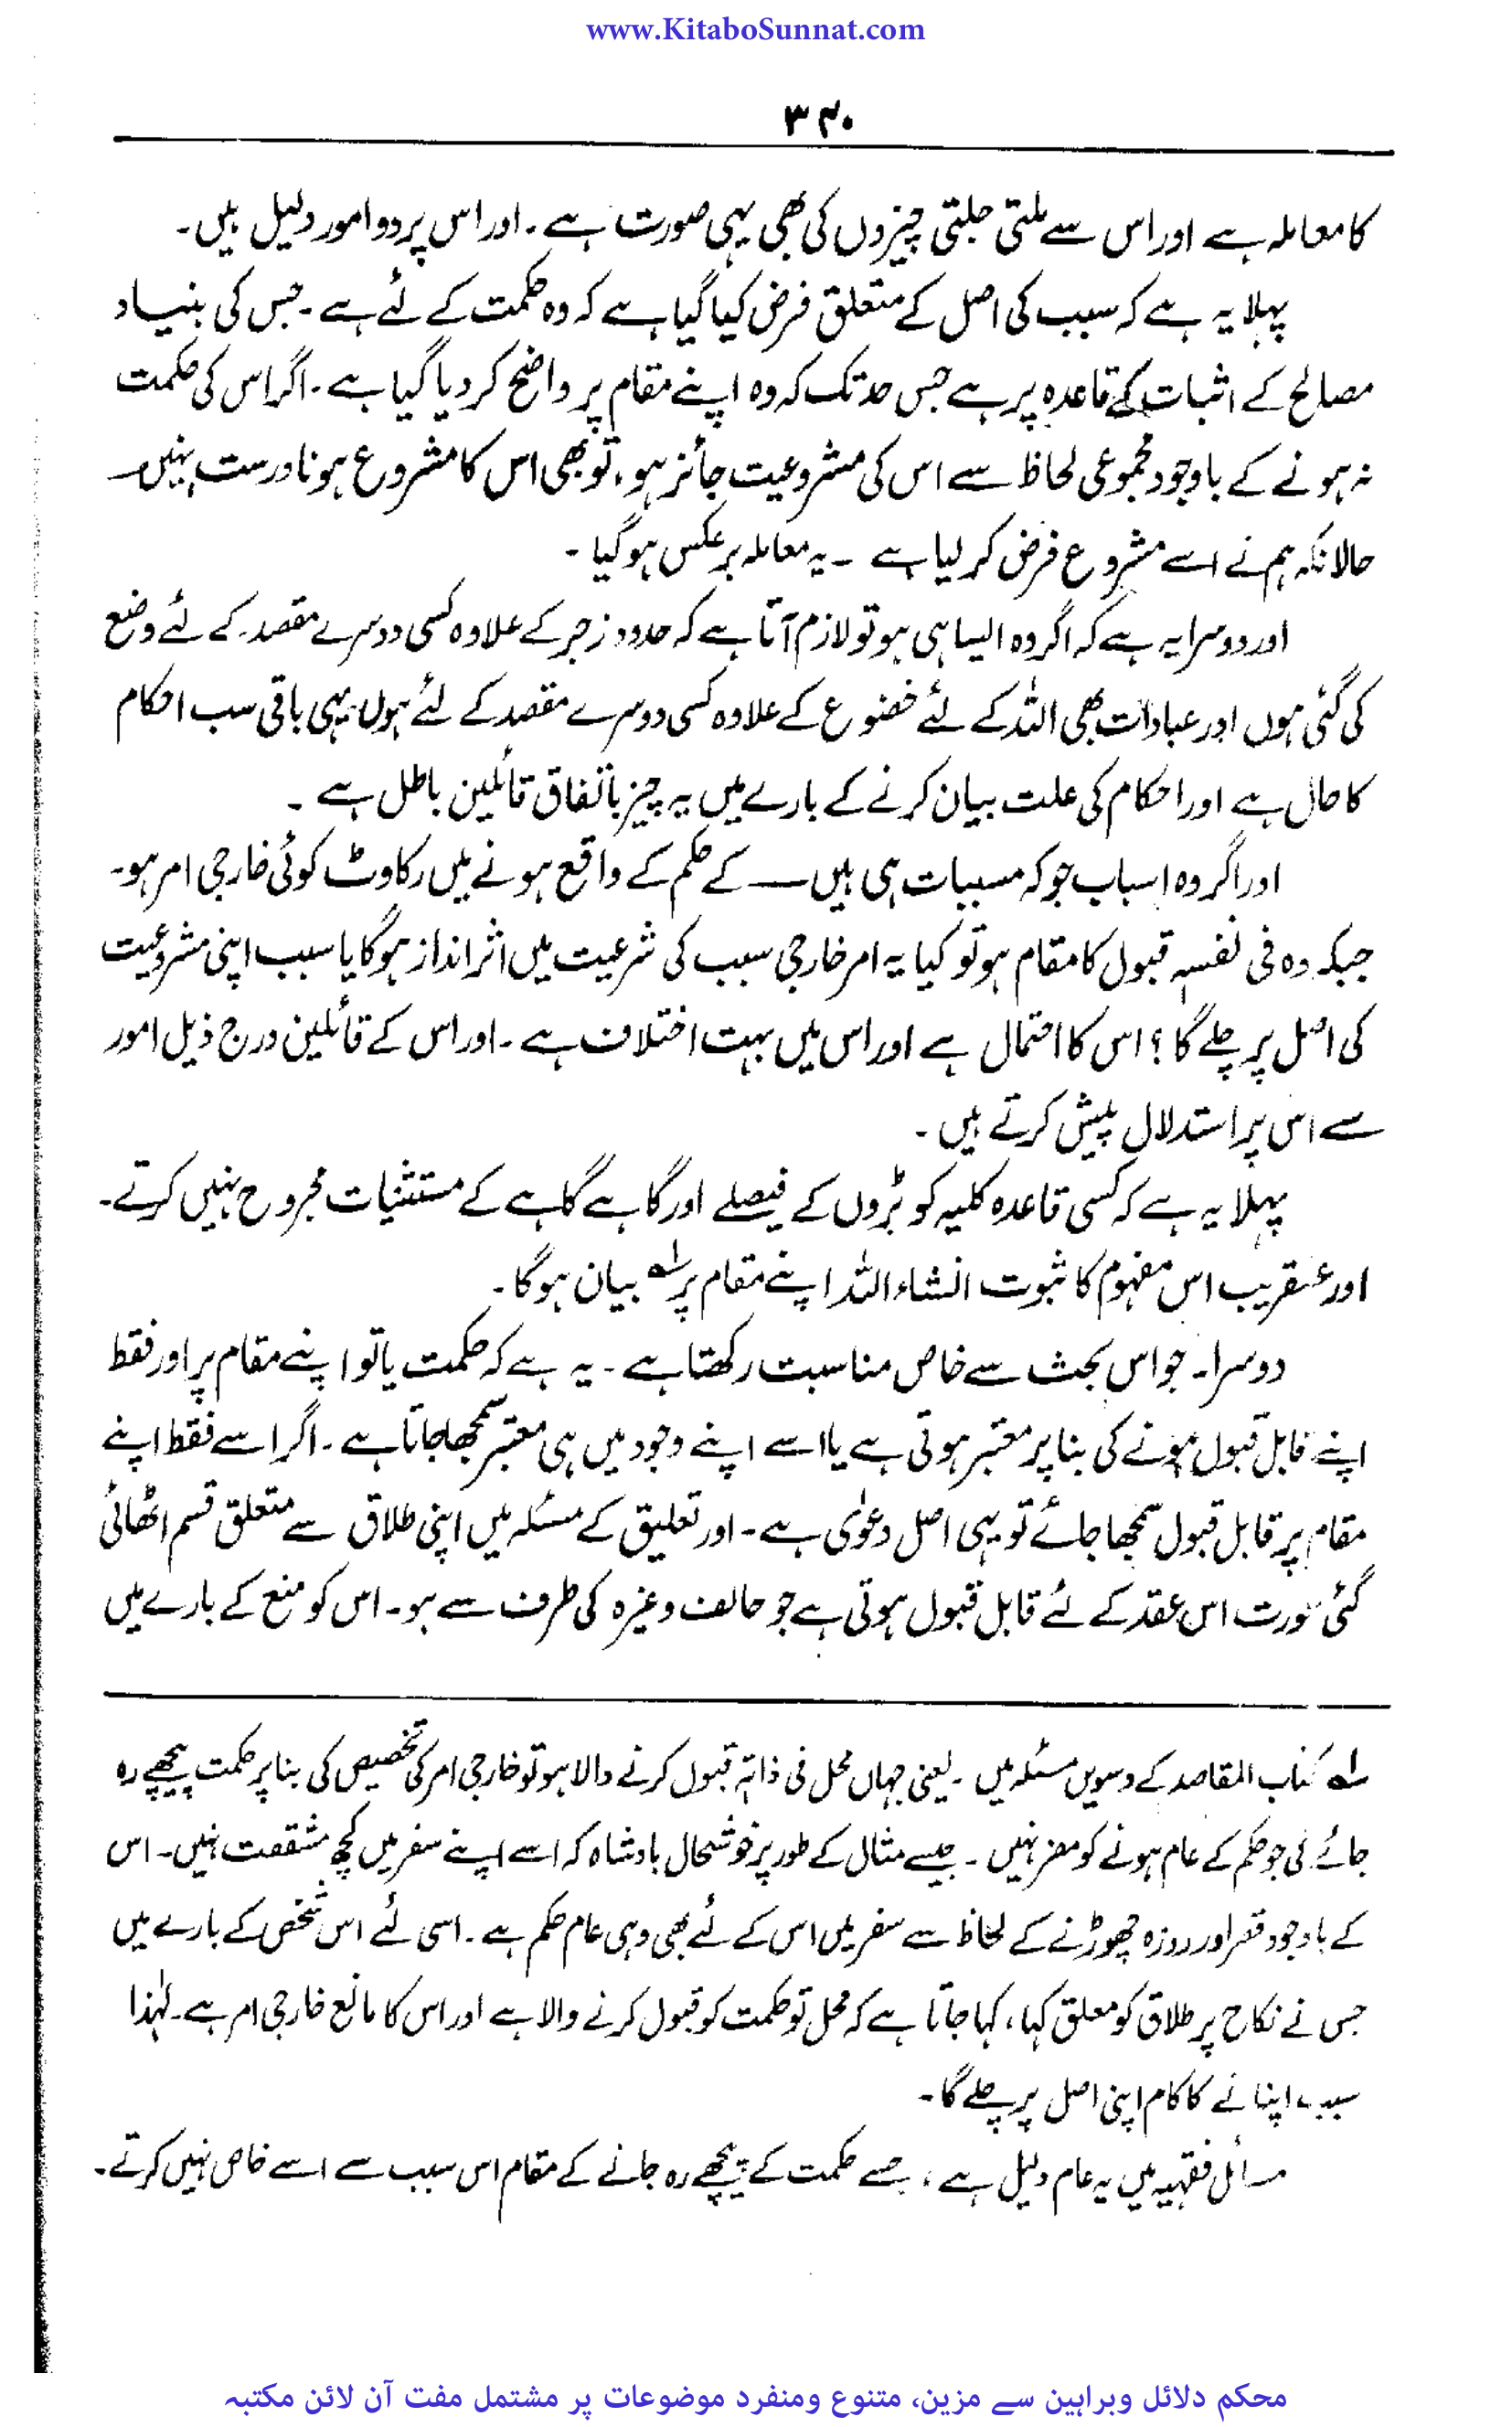 www.KitaboSunnat.com
۳۴۰
کا معاملہ ہے اور اس سے ملتی جلتی چیزوں کی بھی یہی صورت ہے۔ اور اس پر دو امور دلیل ہیں۔
پہلا یہ ہے کہ سبب کی اصل کے متعلق فرض کیا گیا ہے کہ وہ حکمت کے لئے ہے۔ جس کی بنیاد
مصالح کے اثبات کے قاعدہ پر ہے جس حد تک کہ وہ اپنے مقام پر واضح کر دیا گیا ہے۔ اگر اس کی حکمت
نہ ہونے کے باوجود مجموعی لحاظ سے اس کی مشروعیت جائز ہو، تو بھی اس کا مشروع ہونا درست نہیں۔
حالانکہ ہم نے اسے مشروع فرض کر لیا ہے ۔ یہ معاملہ برعکس ہو گیا ۔
اور دوسرا یہ ہے کہ اگر وہ ایسا ہی ہو تو لازم آتا ہے کہ حدود زجر کے علاوہ کسی دوسرے مقصد کے لئے وضع
کی گئی ہوں اور عبادات بھی اللہ کے لئے خضوع کے علاوہ کسی دوسرے مقصد کے لئے ہوں۔ یہی باقی سب احکام
کا حال ہے اور احکام کی علت بیان کرنے کے بارے میں یہ چیز باتفاق قائلین باطل ہے ۔
اور اگر وہ اسباب جو کہ مسببات ہی ہیں ــــ کے حکم کے واقع ہونے میں رکاوٹ کوئی خارجی امر ہو۔
جبکہ وہ فی نفسہٖ قبول کا مقام ہو تو کیا یہ امر خارجی سبب کی شرعیت میں اثر انداز ہوگا یا سبب اپنی مشروعیت
کی اصل پر چلے گا ؟ اس کا احتمال ہے اور اس میں بہت اختلاف ہے۔ اور اس کے قائلین درج ذیل امور
سے اس پر استدلال پیش کرتے ہیں ۔
پہلا یہ ہے کہ کسی قاعدہ کلیہ کو بڑوں کے فیصلے اور گاہے گاہے کے مستثنیات مجروح نہیں کرتے۔
اور عنقریب اس مفہوم کا ثبوت انشاء اللہ اپنے مقام پر لہ بیان ہوگا ۔
دوسرا۔ جو اس بحث سے خاص مناسبت رکھتا ہے ۔ یہ ہے کہ حکمت یا تو اپنے مقام پر اور فقط
اپنے قابل قبول ہونے کی بنا پر معتبر ہوتی ہے یا اسے اپنے وجود میں ہی معتبر سمجھا جاتا ہے۔ اگر اسے فقط اپنے
مقام پر قابل قبول سمجھا جائے تو یہی اصل دعوٰی ہے۔ اور تعلیق کے مسئلہ میں اپنی طلاق سے متعلق قسم اٹھائی
گئی عورت اس عقد کے لئے قابل قبول ہوتی ہے جو حالف وغیرہ کی طرف سے ہو۔ اس کو منع کے بارے میں
لہ کتاب المقاصد کے دسویں مسئلہ میں ۔ یعنی جہاں محل فی ذاتہٖ قبول کرنے والا ہو تو خارجی امر کی تخصیص کی بنا پر حکمت پیچھے رہ
جائے گی جو حکم کے عام ہونے کو مضر نہیں ۔ جیسے مثال کے طور پر خوشحال بادشاہ کہ اسے اپنے سفر میں کچھ مشقت نہیں۔ اس
کے باوجود قصر اور روزہ چھوڑنے کے لحاظ سے سفر میں اس کے لئے بھی وہی عام حکم ہے۔ اسی لئے اس شخص کے بارے میں
جس نے نکاح پر طلاق کو معلق کیا، کہا جاتا ہے کہ محل تو حکمت کو قبول کرنے والا ہے اور اس کا مانع خارجی امر ہے۔ لہٰذا
سبب اپنانے کا کام اپنی اصل پر چلے گا۔
مسائل فقہیہ میں یہ عام دلیل ہے ، جسے حکمت کے پیچھے رہ جانے کے مقام اس سبب سے اسے خاص نہیں کرتے۔
محکم دلائل وبراہین سے مزین، متنوع ومنفرد موضوعات پر مشتمل مفت آن لائن مکتبہ